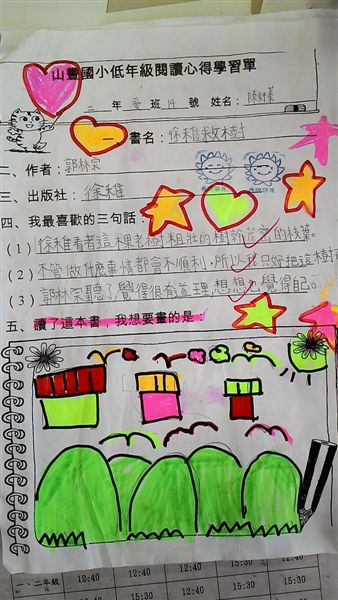 山豐國小低年級閱讀心得學習單
二年愛班14號 姓名：
一、書名：徐稚救樹
二、作者：郭林宗
三、出版社：徐稚
四、我最喜歡的三句話：
(1) 徐稚看者這棵老樹粗壯的樹幹茂密的枝葉。
(2) 不管做什麼事情都會不順利，所以只好把這樹
(3) 郭林宗聽了覺得很有道理，想想也覺得自己。
五、讀了這本書，我想要畫的是：
一、二年級 12:40 12:40 12:40 15:30 12:40
15:30 15:30